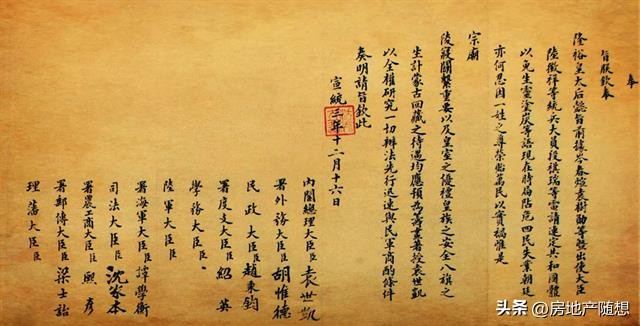 奉
旨朕欽奉
隆裕皇太后懿旨前據岑春煊袁樹勛等暨出使大臣
陸徵祥等統兵大員段祺瑞等電請速定共和國體
以免生靈塗炭等語現在時局阽危四民失業朝廷
亦何忍因一姓之尊榮貽萬民以實禍惟是
宗廟
陵寢關繫重要以及皇室之優禮皇族之安全八旗之
生計蒙古回藏之待遇均應預為籌畫著授袁世凱
以全權研究一切辦法先行迅速與民軍商酌條件
奏明請旨欽此
宣統三年十二月十六日
內閣總理大臣臣袁世凱
署外務大臣臣胡惟德
民政大臣臣趙秉鈞
署度支大臣臣紹英
學務大臣臣
陸軍大臣臣
署海軍大臣臣譚學衡
司法大臣臣沈家本
署農工商大臣臣熙彥
署郵傳大臣臣梁士詒
理藩大臣臣
头条 @房地产随想